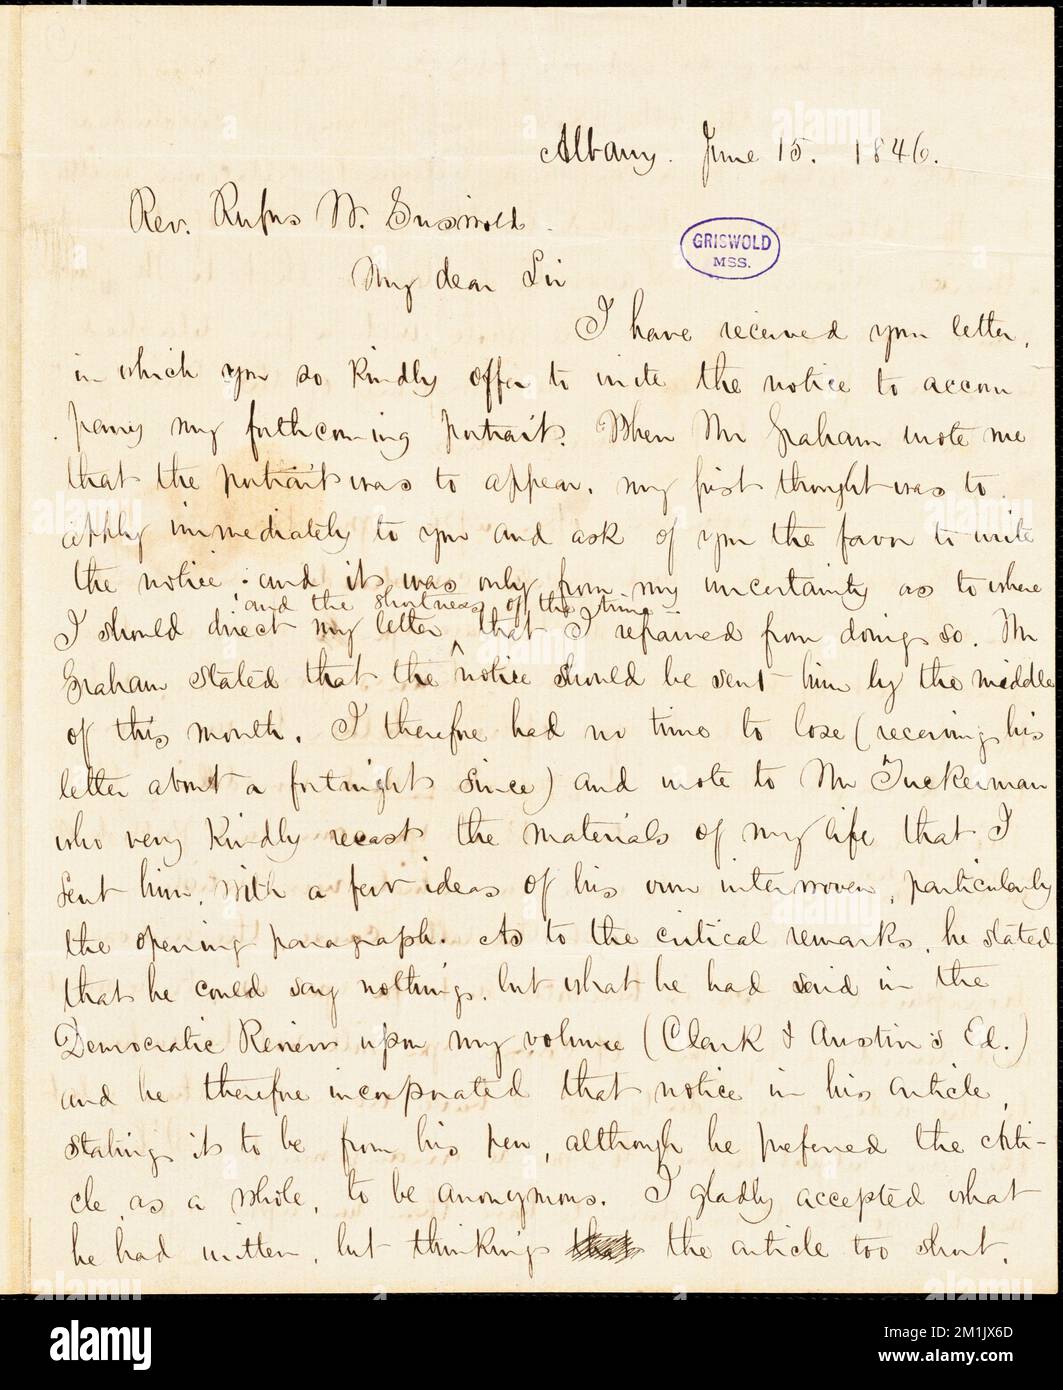 Albany. June 15. 1846.
Rev. Rufus W. Griswold.
GRISWOLD
MSS.
My dear Sir
I have received your letter,
in which you so kindly offer to write the notice to accom
pany my forthcoming portrait. When Mr Graham wrote me
that the portrait was to appear, my first thought was to
apply immediately to you and ask of you the favor to write
the notice; and it was only from my uncertainty as to where
and the shortness of the time
I should direct my letter that I refrained from doing so. Mr
Graham stated that the notice should be sent him by the middle
of this month. I therefore had no time to lose (receiving his
letter about a fortnight since) and wrote to Mr Tuckerman
who very kindly recast the materials of my life that I
sent him, with a few ideas of his own interwoven, particularly
the opening paragraph. As to the critical remarks, he stated
that he could say nothing, but what he had said in the
Democratic Review upon my volume (Clark & Austin's Ed.)
and he therefore incorporated that notice in his article,
stating it to be from his pen, although he preferred the arti-
cle, as a whole, to be anonymous. I gladly accepted what
he had written, but thinking the article too short,
alamy
Image ID: 2M1JX6D
www.alamy.com